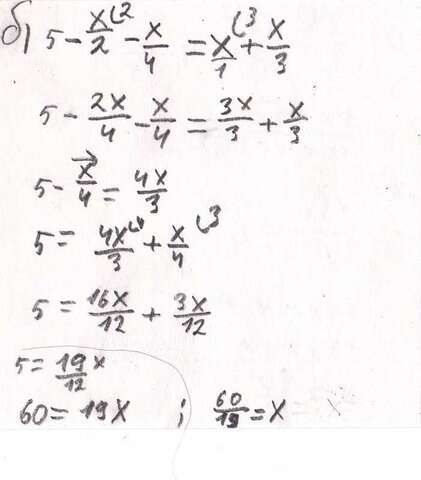 б) 5 - x/2 ⁽² - x/4 = x/1 ⁽³ + x/3
5 - 2x/4 - x/4 = 3x/3 + x/3
5 - x/4 = 4x/3
5 = 4x/3 ⁽⁴ + x/4 ⁽³
5 = 16x/12 + 3x/12
5 = 19/12 x
60 = 19x ; 60/19 = x